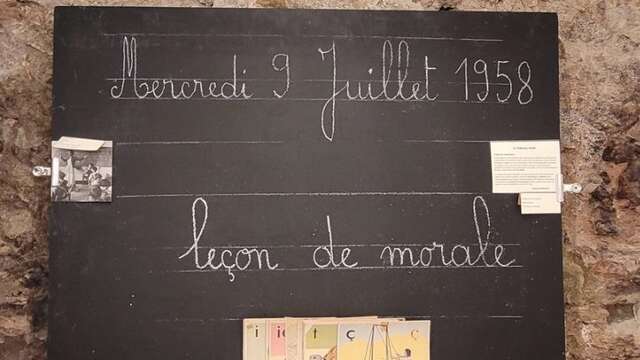 Mercredi 9 Juillet 1958
leçon de morale
i i t ç ç